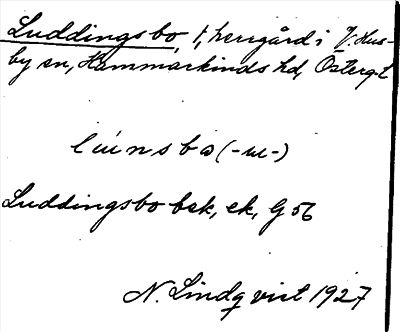 Luddingsbo, t, herrgård i V. Hus-
by sn, Hammarkinds hd, Östergl
lúnsbo (-ɯ-)
Luddingsbo bsk, ek, G 56
N. Lindqvist 1927